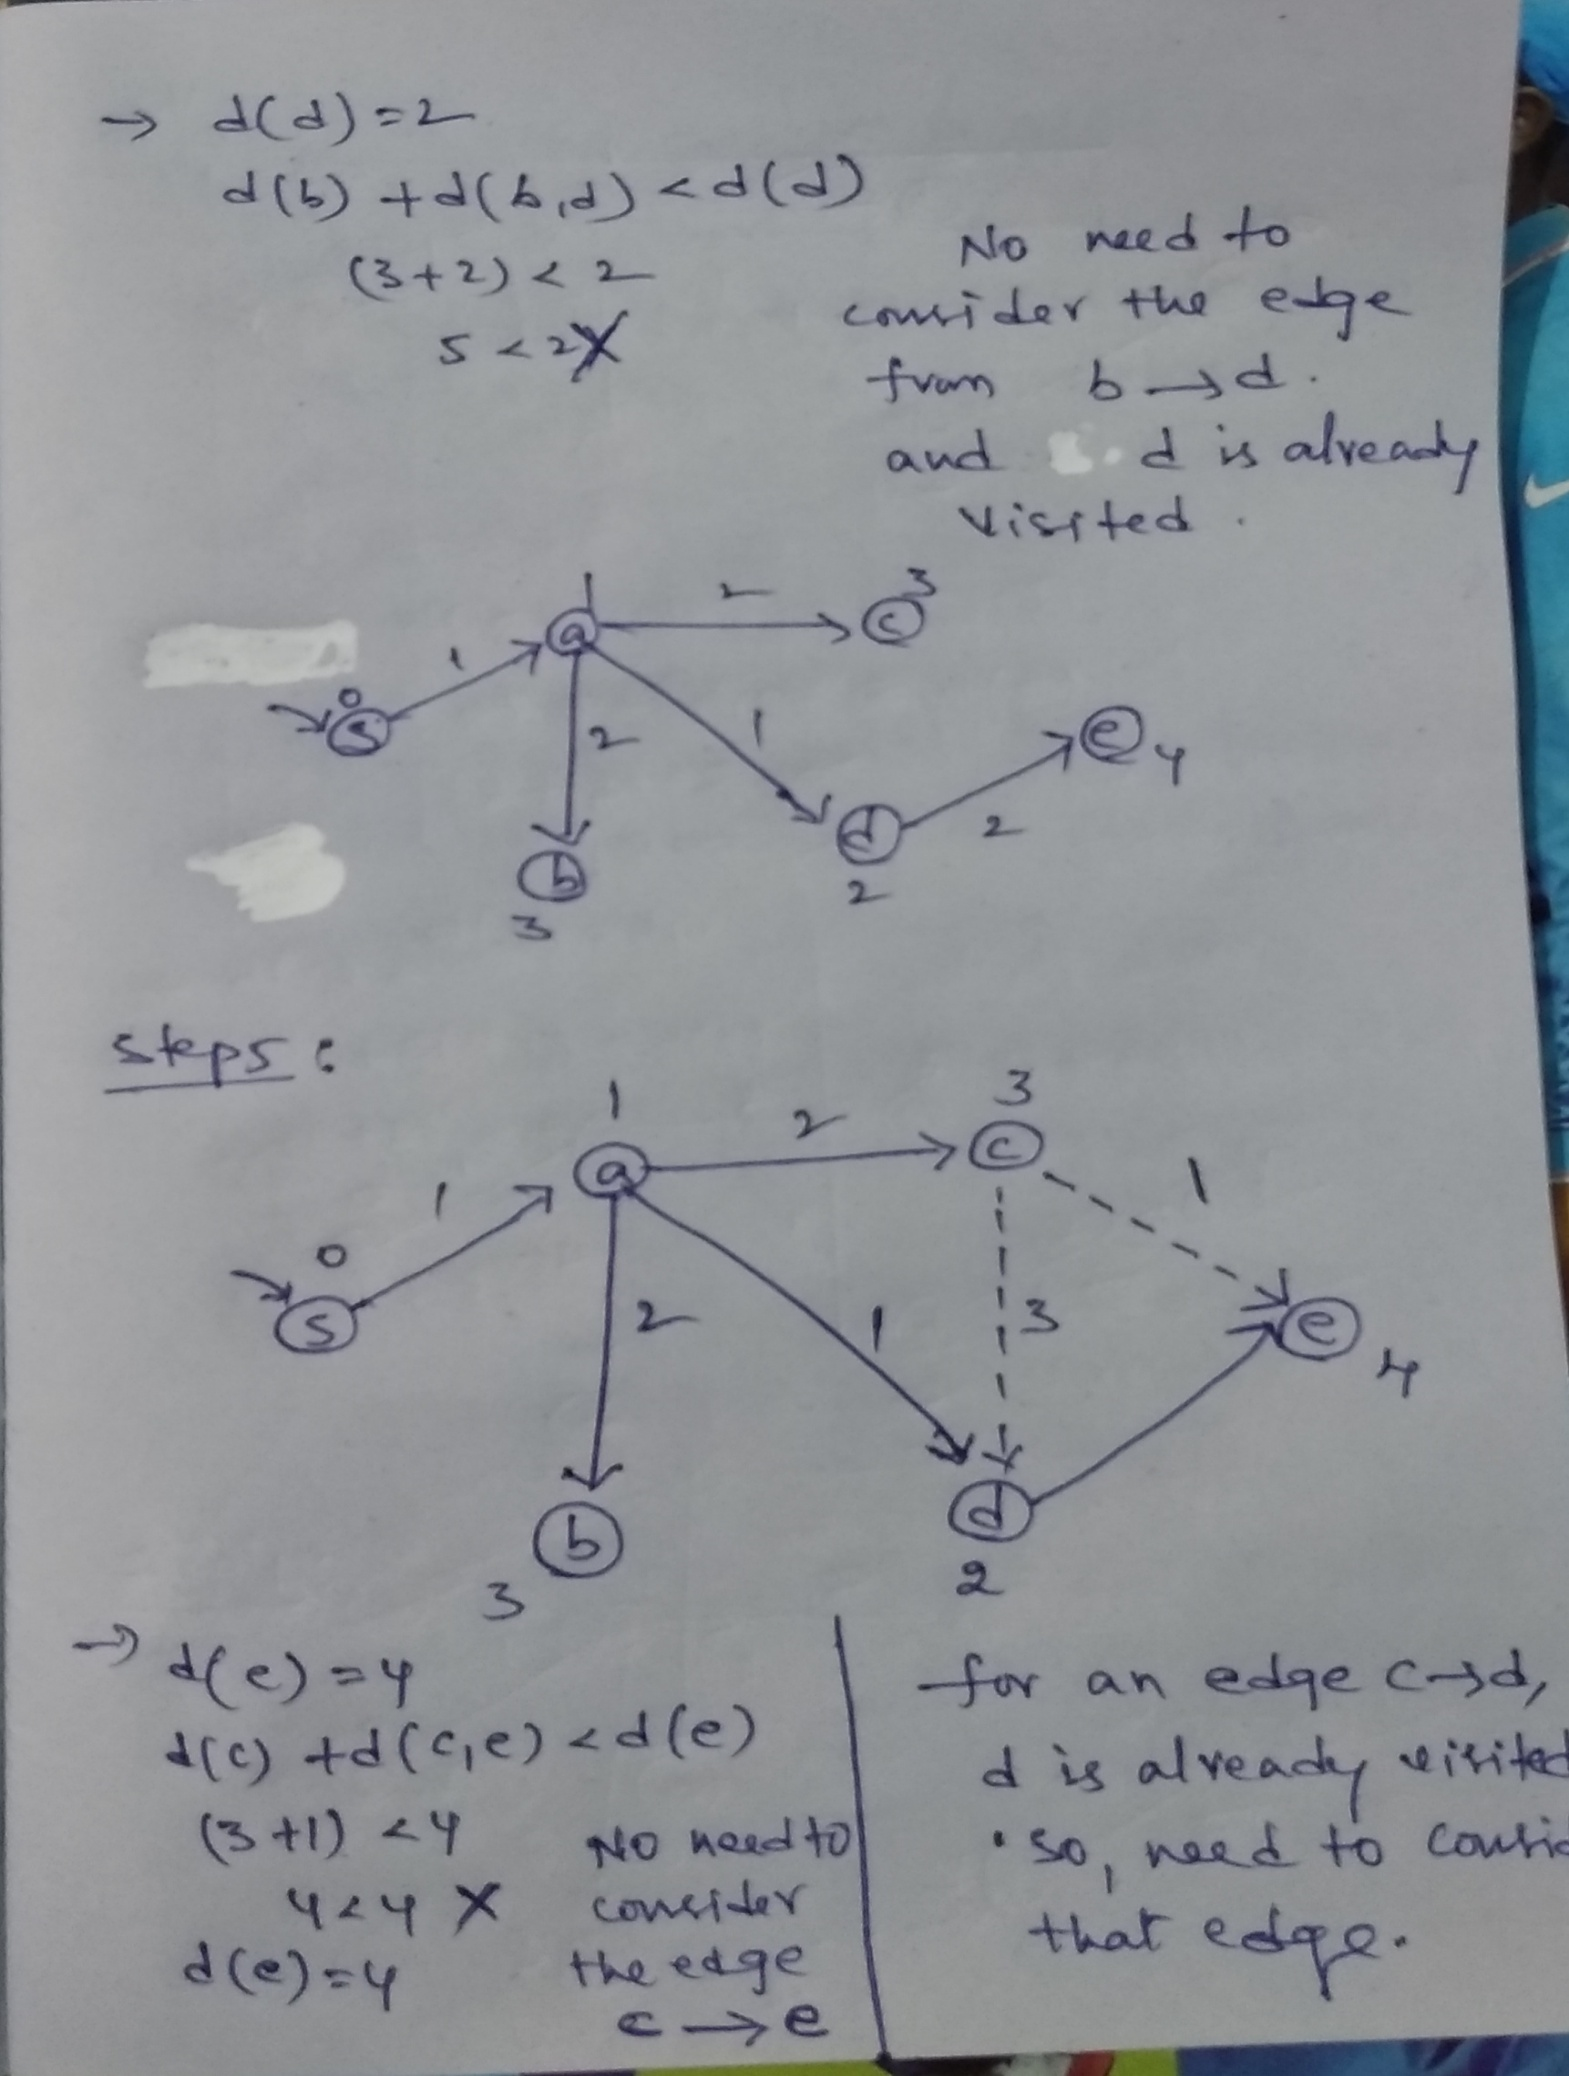 → d(d)=2
d(b) + d(b,d) < d(d)
(3+2) < 2
5 < 2 X
No need to
consider the edge
from b → d.
and d is already
visited.
1
2
3
a
c
1
0
s
2
1
e 4
d
2
b
2
3
Step5:
1
2
3
a
c
1
1
0
s
2
1
3
e
4
b
d
3
2
→ d(e) = 4
d(c) + d(c,e) < d(e)
(3+1) < 4
4 < 4 X
d(e) = 4
No need to
consider
the edge
c → e
for an edge c→d,
d is already visited
. so, need to
that edge.